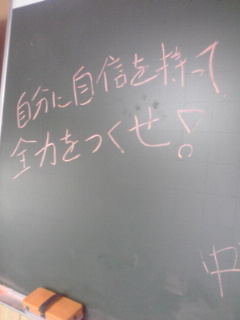 自分に自信を持って
全力をつくせ!
中